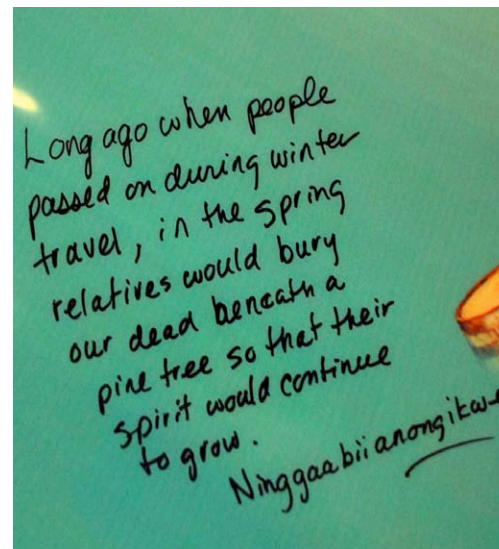 Long ago when people
passed on during winter
travel, in the spring
relatives would bury
our dead beneath a
pine tree so that their
spirit would continue
to grow.
Ninggaabiianongikwe